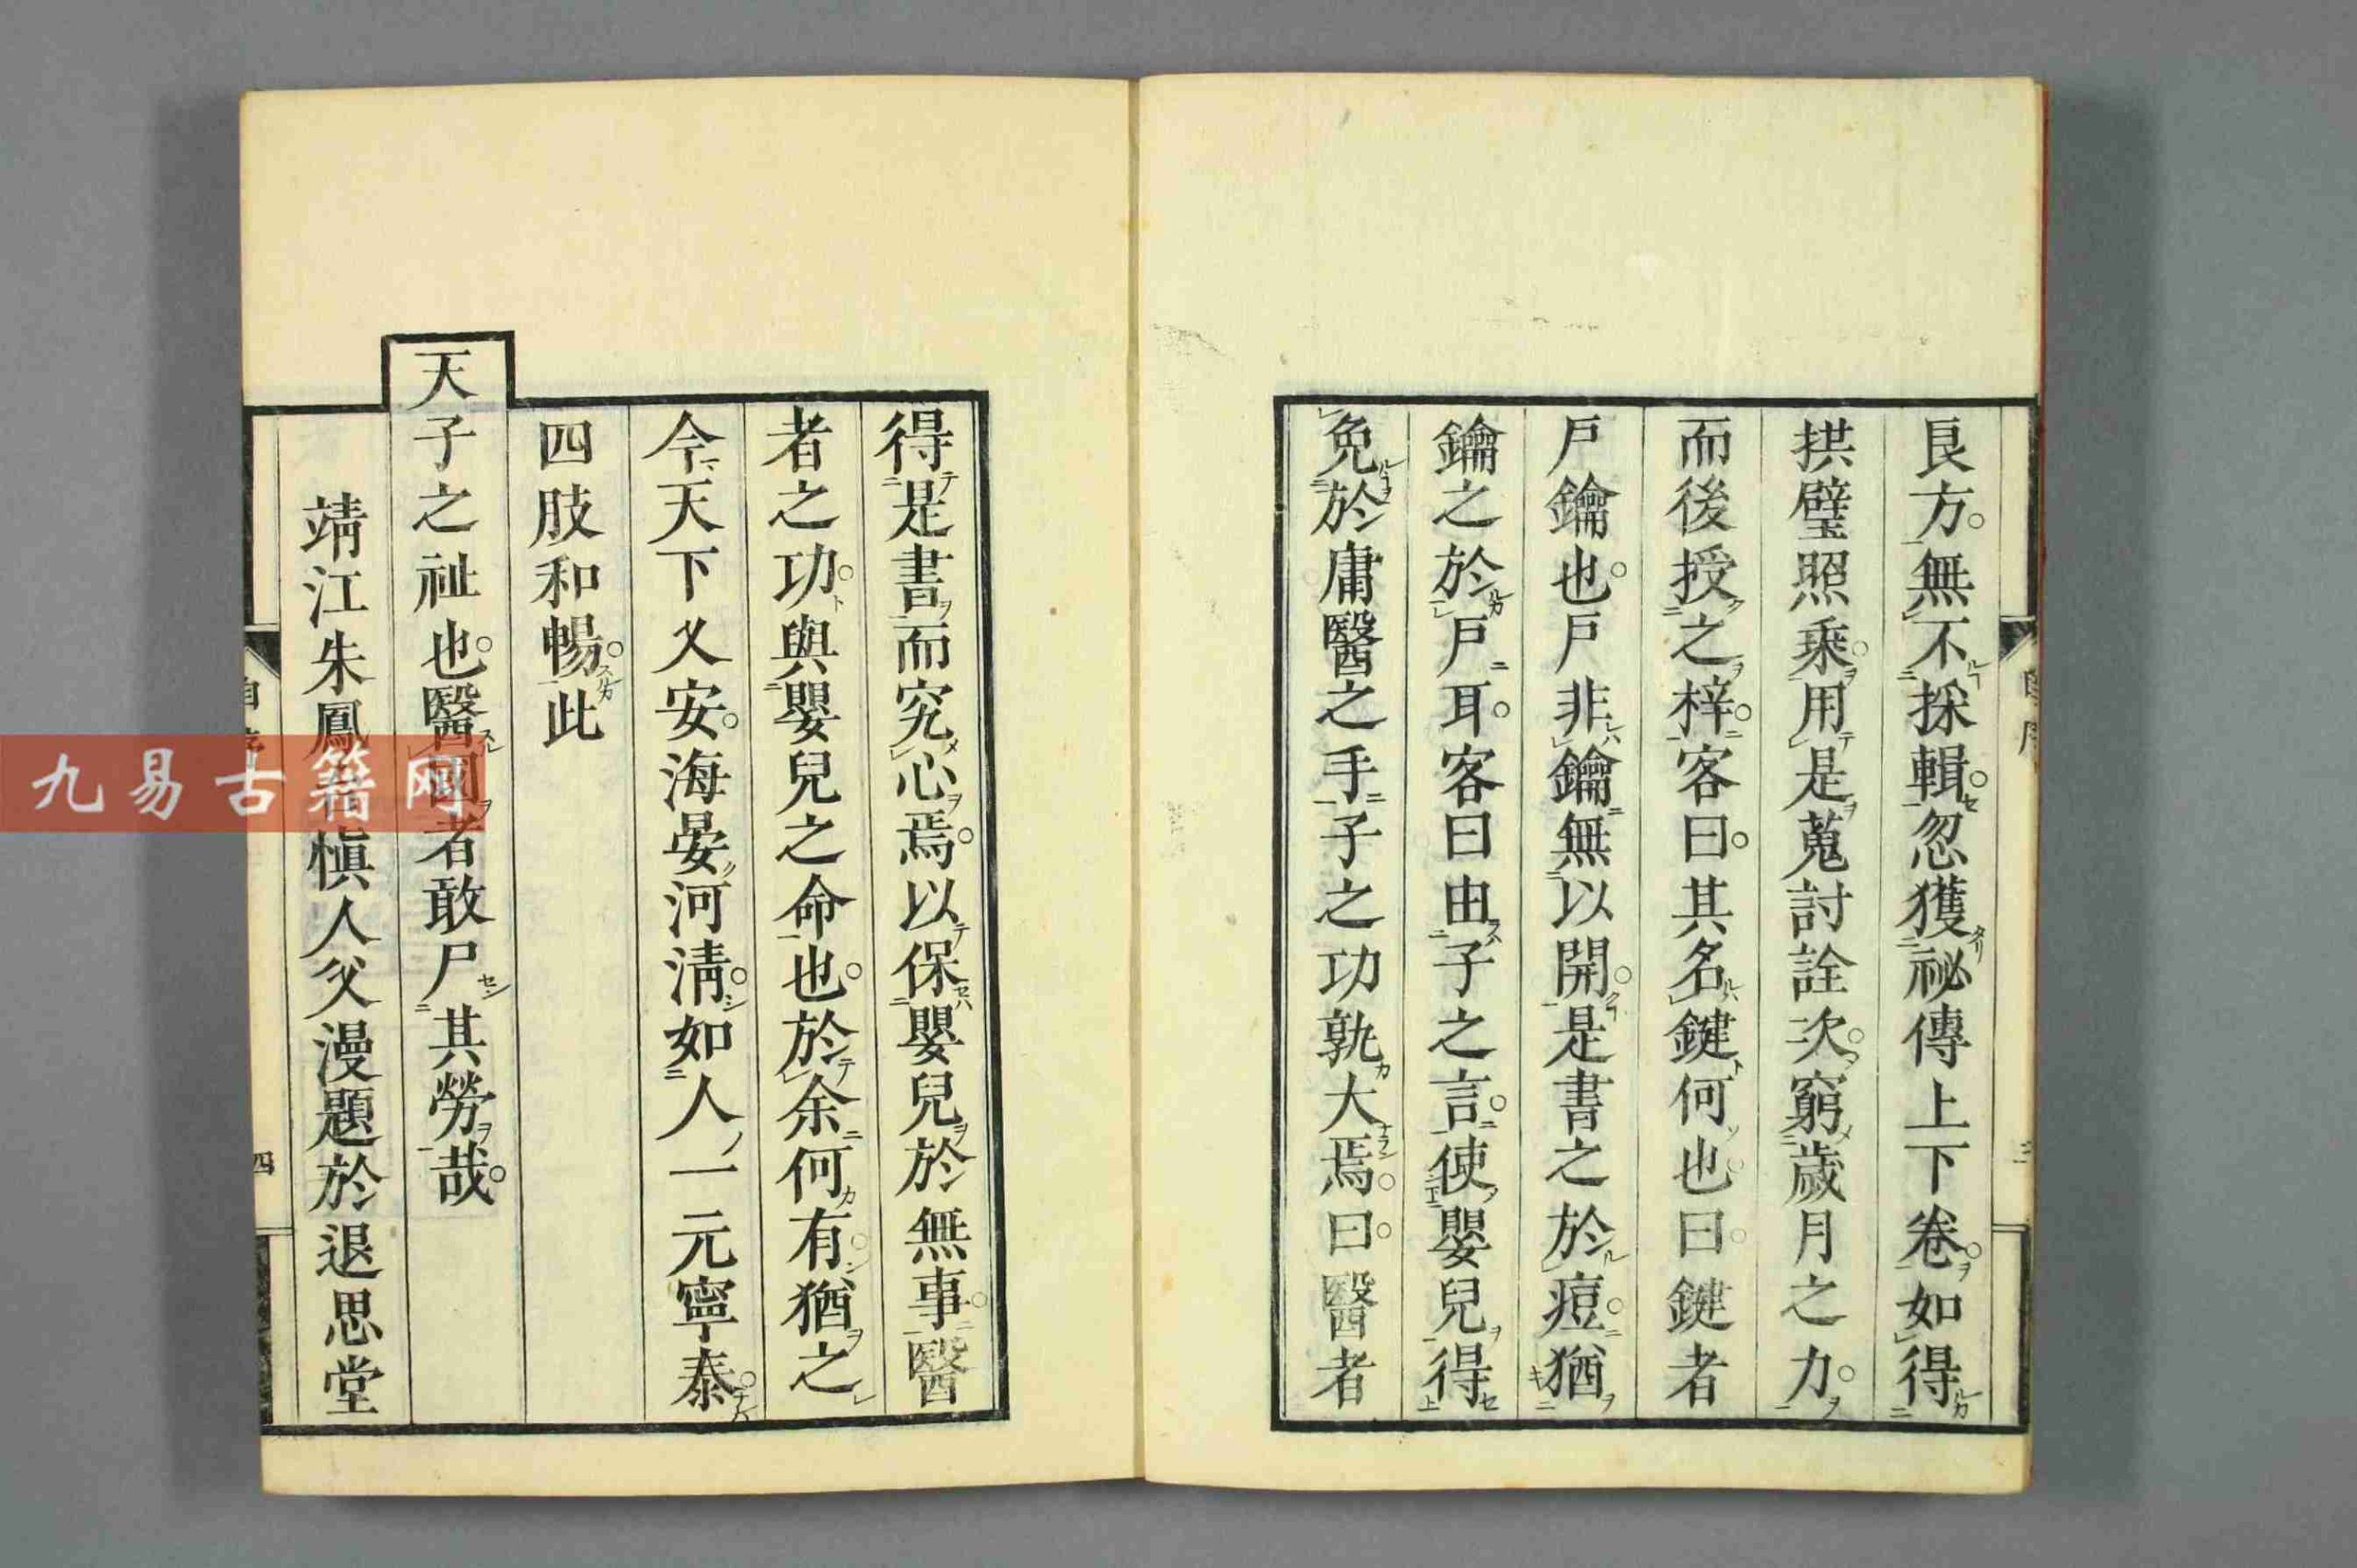 良方無不採輯忽獲祕傳上下卷如得
拱璧照乘用是蒐討詮次窮歲月之力
而後授之梓客曰其名鍵何也曰鍵者
戶鑰也戶非鑰無以開是書之於痘猶
鑰之於戶耳客曰由子之言使嬰兒得
免於庸醫之手子之功孰大焉曰醫者
得是書而究心焉以保嬰兒於無事醫
者之功與嬰兒之命也於余何有猶之
今天下乂安海晏河淸如人一元寧泰
四肢和暢此
天子之祉也醫國者敢尸其勞哉
靖江朱鳳台愼人父漫題於退思堂
四
九易古籍网